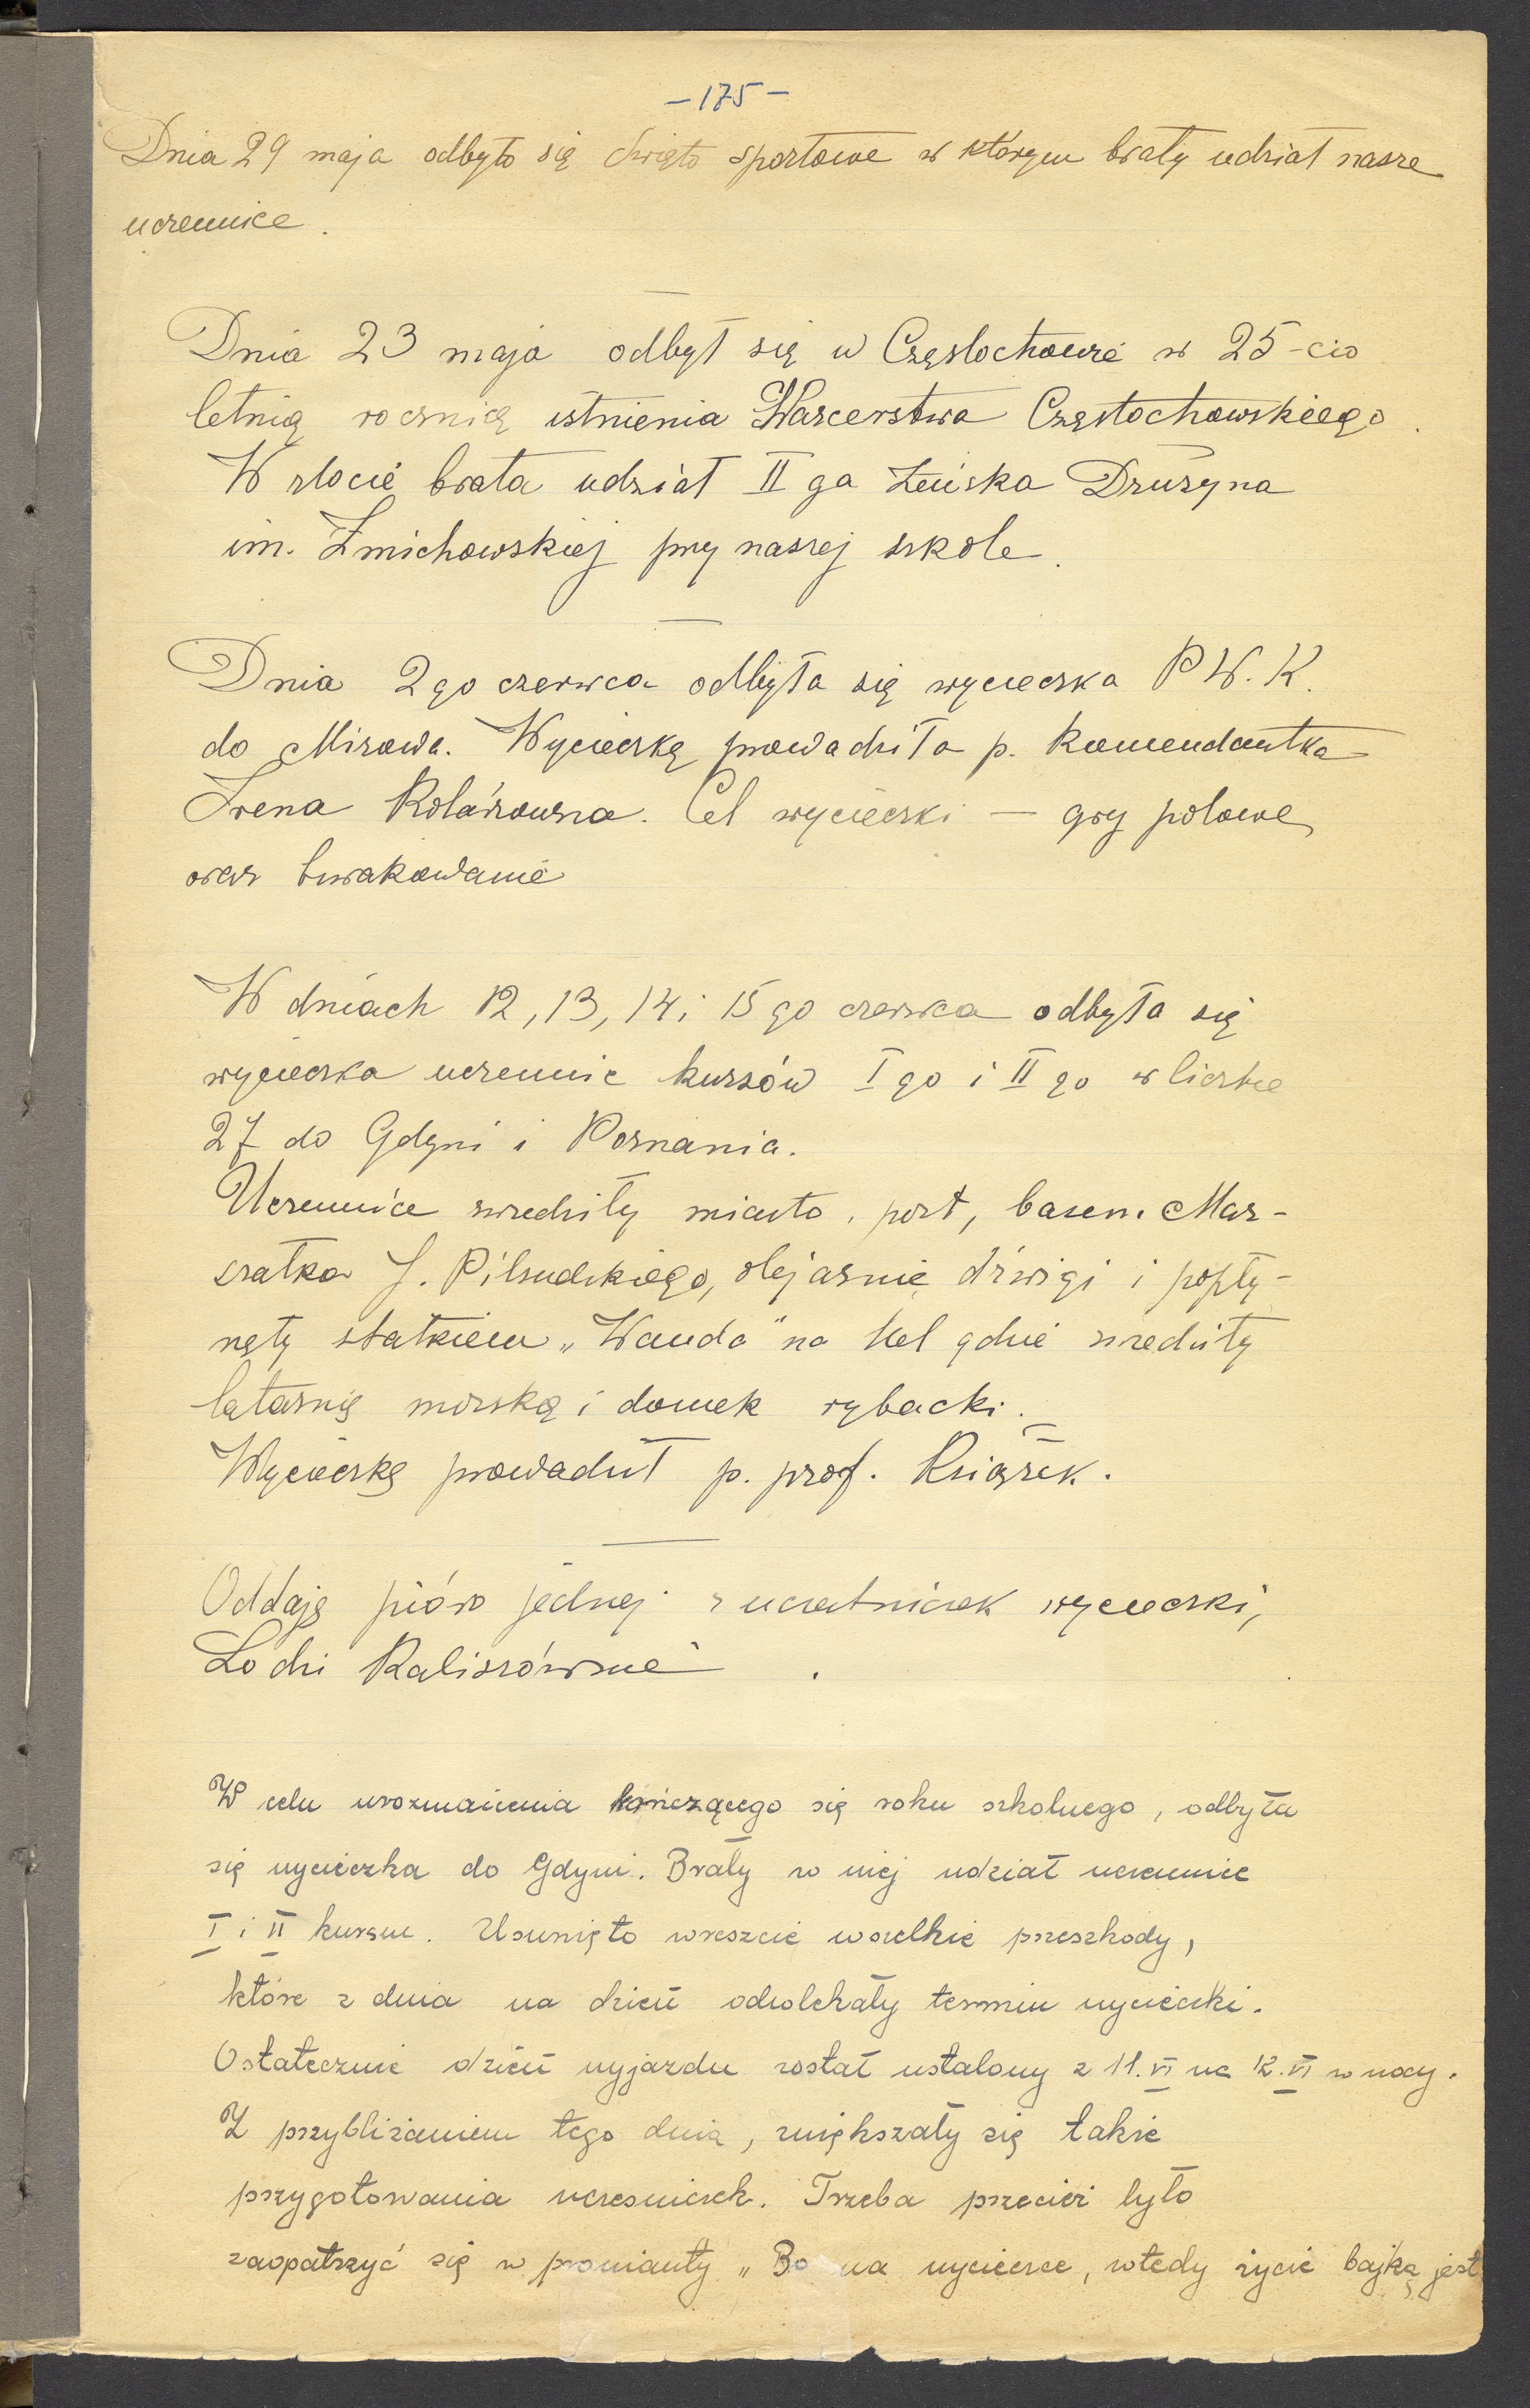 - 175 -
Dnia 29 maja odbyło się święto sportowe w którym brały udział nasze
uczennice.
Dnia 23 maja odbył się w Częstochowie w 25-cio
letnią rocznicę istnienia Harcerstwa Częstochowskiego.
W zlocie brała udział II ga Żeńska Drużyna
im. Żmichowskiej przy naszej szkole.
Dnia 2go czerwca odbyła się wycieczka P.W.K.
do Mirowa. Wycieczkę prowadziła p. Komendantka
Irena Kolańzowna. Cel wycieczki — gry polowe,
oraz biwakowanie
W dniach 12, 13, 14 i 15 go czerwca odbyła się
wycieczka uczennic kursów I go i II go w liczbie
27 do Gdyni i Poznania.
Uczennice zwiedziły miasto, port, basen Mar-
szałka J. Piłsudskiego, olejarnię dźwigi i popły-
nęły statkiem „Wanda" na Hel gdzie zwiedziły
latarnię morską i domek rybacki.
Wycieczkę prowadził p. prof. Książek.
Oddaję pióro jednej z uczestniczek wycieczki,
Lodzi Kaliszównie.
W celu urozmaicenia kończącego się roku szkolnego, odbyła
się wycieczka do Gdyni. Brały w niej udział uczennice
I i II kursu. Usunięto wreszcie wszelkie przeszkody,
które z dnia na dzień odwlekały termin wycieczki.
Ostatecznie dzień wyjazdu został ustalony z 11.VI na 12.VI w nocy.
Z przybliżaniem tego dnia, zwiększały się także
przygotowania uczesniczek. Trzeba przecież było
zaopatrzyć się w prowianty „Bo na wycieczce, wtedy życie bajką jest